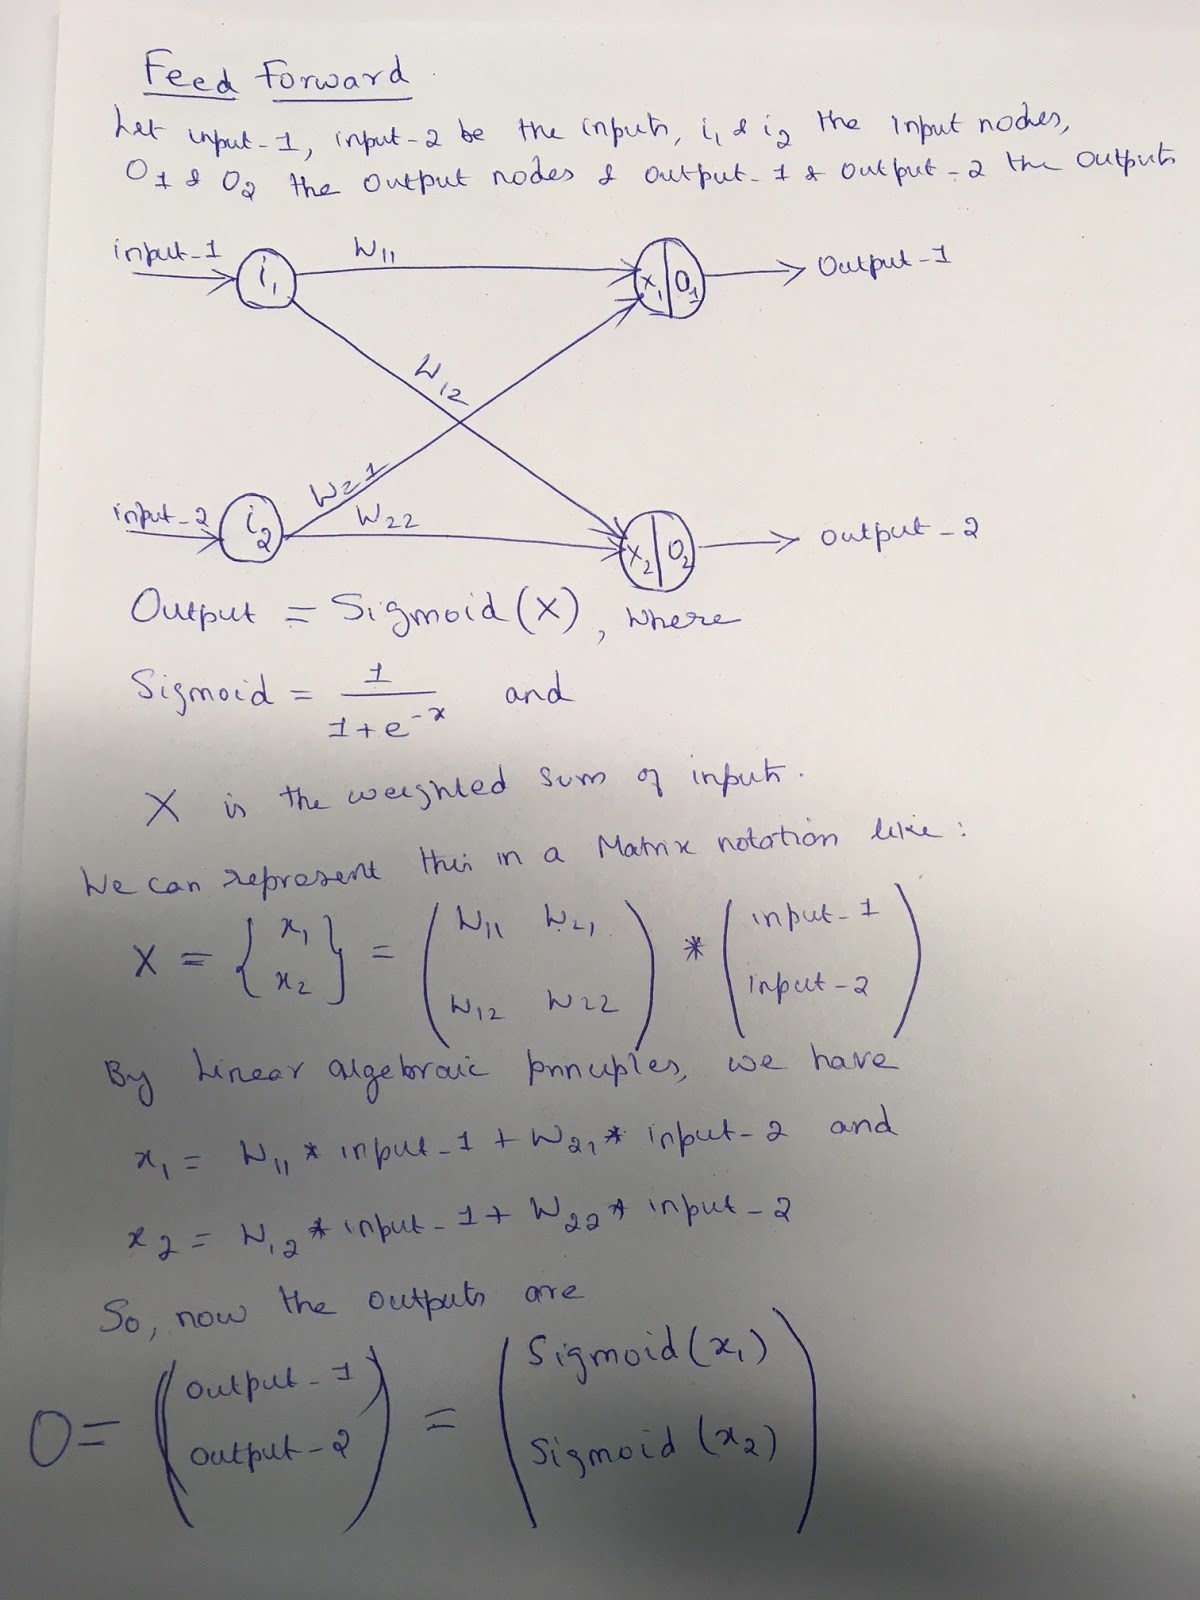 Feed Forward
Let input-1, input-2 be the inputs, i1 & i2 the input nodes,
O1 & O2 the output nodes & output-1 & output-2 the outputs
input-1 i1 W11 x1 O1 Output-1
W12
W21
input-2 i2 W22 x2 O2 output-2
Output = Sigmoid(X), where
Sigmoid = 1 / (1+e^-x) and
X is the weighted sum of inputs.
We can represent this in a Matrix notation like:
X = { x1 } = ( W11 W21 ) * ( input-1 )
{ x2 } ( W12 W22 ) ( input-2 )
By Linear algebraic principles, we have
x1 = W11 * input-1 + W21 * input-2 and
x2 = W12 * input-1 + W22 * input-2
So, now the outputs are
O = ( output-1 ) = ( Sigmoid(x1) )
( output-2 ) ( Sigmoid(x2) )